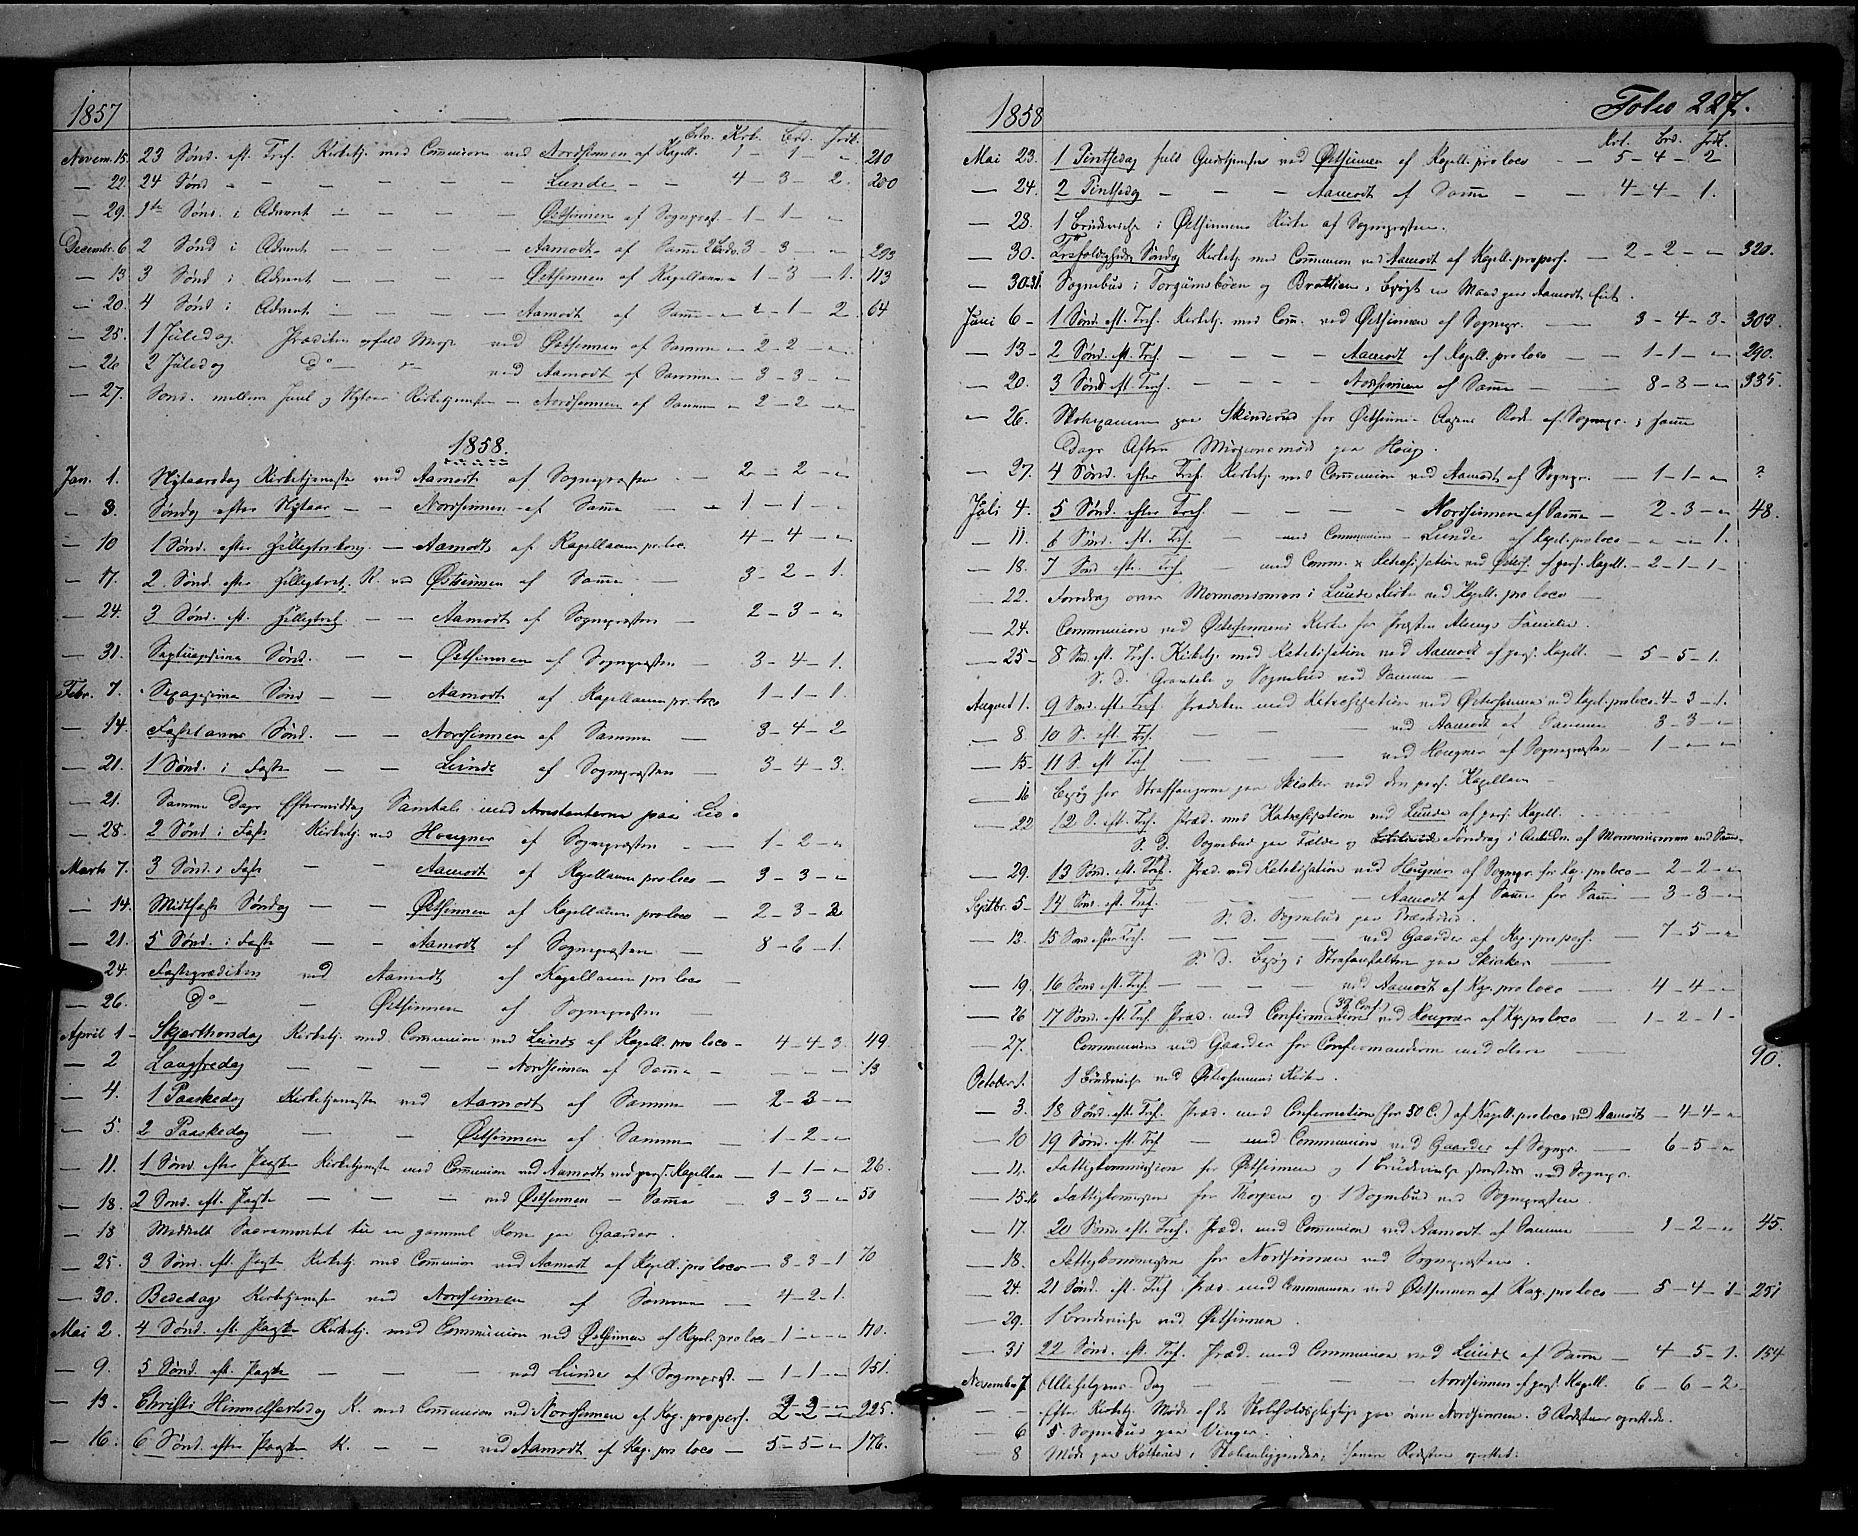 1857
Novem. 15. 23 Sønd. eft. Tref. Kirketj. med Communion ved Nordsinnen af Kapell. 1 - 1 - „ 210
— 22. 24 Sønd - - - - - Lunde - - 4 - 3 - 2. 200
— 29. 1ste Sønd. i Advent - - - - Østsinnen af Sognepræst. - 1 - 1 - „
Decembr. 6 2 Sønd i Advent - - - Aamodt af Samme 3 - 3 - „ 293
— 13 3 Sønd i Advent - - - Østsinnen af Kapellanen - 1 - 3 - 1. 113
— 20. 4 Sønd i Advent - - - Aamodt af Samme - 1 - 2 64
— 25. 1 Juledag. Prædiken ved Østsinnen af Samme - 2 - 2 - „
— 26 2 Juledag do ved Aamodt af Samme - 3 - 3 - „
— 27. Sønd. mellem Juul og Nytaar Kirketjenesten - Nordsinnen af Samme - 2 - 2 - „
1858.
Jan. 1. Nytaarsdag Kirketjeneste ved Aamodt af Sognepræsten - 2 - 2 - „
— 3. Søndag efter Nytaar - - Nordsinnen af Samme - 1 - 1 - „
— 10 1 Sønd. efter Helligtrekong. - Aamodt af Kapellanen pr. loc. 4 - 4 - „
— 17. 2. Sønd. efter Helligtrek. K. ved Østsinnen af Samme - 3 - 2 - 1.
— 24. 3 Sønd. eft. Helligtrek - - Aamodt af Sognepræsten - 2 - 3 - „
— 31. Septuagesima Sønd. - - Østsinnen af Sognepræsten - 3 - 4 - 1.
Febr. 7. Sexagesima Sønd - - Aamodt af Kapellanen pr. loco 1 - 1 - 1.
— 14. Fastelavns Sønd. - - Nordsinnen af Samme - 3 - 4 - 2
— 21. 1 Sønd. i Faste - - Lunde af Sognepræsten - 3 - 4 - 3.
— 21. Samme Dags Eftermiddag Samtale med Arrestanterne paa Lie.
— 28. 2 Sønd i Faste Kirketj. ved Hougner af Sognepræsten - 1 - 2 - „
Marts 7. 3 Sønd. i Faste - Aamodt af Kapellanen pro loco - 3 - 3 - „
— 14. Midfaste Søndag - - Østsinnen af Kapellanen pro loco - 2 - 3 - 2
— 21. 5 Sønd. i Faste - - Aamodt af Sognepræsten - 8 - 6 - 1.
— 24. Fasteprædiken ved Aamodt af Kapellanen pro loco -
— 26. Do - Østsinnen af Sognepræsten -
April 1 - Skjærthorsdag Kirketj. med Communion ved Lunde af Kapell. pro loco - 4 - 4 - 3. 49.
— 2 Langfredag - - - Nordsinnen af Samme - - - - 13
— 4. 1 Paaskedag Kirketjenesten ved Aamodt af Samme - 2 - 3 - „
— 5. 2 Paaskedag - - Østsinnen af Samme - 1 - 2 - „
— 11. 1 Sønd. efter Paaske Kirketjeneste med Communion ved Aamodt ved pers. Kapellan - 1 - 1 - „ 26.
— 18. 2 Sønd. eft. Paaske - - - ved Østsinnen - Samme - 3 - 3 - „ 50
— 18 Meddelt Sacramentet til en gammel Kone paa Gaarder.
— 25. 3 Sønd. eft. Paaske Kirketj. med Communion ved Aamodt af Kapell. pro loco - 3 - 3 - 1 70
— 30. Bededag Kirketjeneste ved Nordsinnen af Samme - 4 - 2 - 1.
Mai 2. 4 Sønd. eft. Paaske Kirketj. med Communion ved Østsinnen af Kapel. pro loco - 1 - „ - „ 170.
— 9. 5 Sønd. eft. Paaske - - ved Lunde af Sognepræst. - 1 - 1 - „ 151.
— 13. Christi Himmelfartsdag K. med Communion ved Nordsinnen af Kap. pro pers. 2 - 2 - „ 225.
— 16. 6 Sønd. efter Paaske K. - - ved Aamodt af Kap. pro loco - 5 - 5 - „ 176.
1858 Folio 227.
Mai 23. 1 Pintsedag holdt Gudstjeneste ved Østsinnen af Kapell. pro loco - 5 - 4 - 2
— 24. 2 Pintsedag - - - Aamodt af Samme - 4 - 4 - 1.
— 28. 1 Brudevielse i Østsinnens Kirke af Sognepræsten.
— 30. Trefoldigheds Søndag Kirketj. med Communion ved Aamodt af Kapell. pro pers. - 2 - 2 - „ 320.
— 30-31 Sognebud i Torgunsbøen og Brattlien,
Juni 6 - 1 Sønd. eft. Tref. Kirketj. med Com. ved Østsinnen af Sognepr. - 3 - 4 - 3 - 303.
— 13 - 2 Sønd. eft. Tref. - - - - Aamodt af Kapell. pro loco - 1 - 1 - „ 290.
— 20. 3 Sønd. eft. Tref. - - - Nordsinnen af Samme - 8 - 8 - „ 335.
— 26. Skoleexamen paa Skinderud for Østsinnen Rode af Sognepr., samme
Dags Aften Missionsmøde paa Houg.
— 27. 4 Sønd. efter Tref. Kirketj. med Communion ved Aamodt af Sognepr. - 1 - 1 - „ ?
Juli 4. 5 Sønd. efter Tref - - - - Nordsinnen af Samme - 2 - 3 - „ 48.
— 11. 6 Sønd. eft. Tref. - med Communion - Lunde af Kapel. pro loco - „ - „ 1.
— 18. 7 Sønd eft. Tref - med Comm. & Katechisation ved Østsi. af pers. Kapell. - 2 - 1 - 1 -
— 22. Foredrag over Mormonismen i Lunde Kirke ved Kapell. pro loco -
— 24. Communion ved Østsinnens Kirke for Præsten Familie.
— 25 - 8 Sønd. eft. Tref. Kirketj. med Katekisation ved Aamodt af pers. Kapell. - 5 - 5 - 1.
S. D. og Sognebud ved Samme -
August 1. 9 Sønd. eft. Tref. Prædiken med Katechisation ved Østsinnen ved Kapel. pro loco 4 - 3 - 1.
— 8 10 S. eft. Tref. - - - ved Aamodt af Samme 3 - 3 - „
— 15 - 11 S. eft Tref - - - ved Hougner af Sognepræsten - 1 - „ - „
— 16 Besøg for Straffangerne paa Skiaker ved den pers. Kapellan -
— 22 12 S. eft. Tref. Præd. med Katechisation ved Lunde af pers. Kapell.
S. D. Sognebud paa Fælde og Foredrag i Anledn. af Mormonismen ved Samme
— 29. 13 Sønd. eft. Tref. Præd. med Katekisation ved Hougner af Sognepr. for Kap. pro loco - 2 - 2 - „
Septbr. 5 - 14 Sønd. eft. Tref. - - - Aamodt af Samme for Samme - 3 - 3 - „
S. D. Sognebud paa
— 12. 15 Sønd efter Tref. - - - ved Gaarder af Kap. pro pers. - 7 - 5 - „
S. D. Besøg i Strafanstalten paa Skiaker -
— 19. 16 Sønd eft. Tref. - - - ved Aamodt af Kap. pro loco - 4 - 4 - „
— 26 17 Sønd. eft. Tref Præd. med Confirmation (33 Conf.) ved Hougner af Kap. pro loco - 1 - 2 - 1 -
27. Communion ved Gaarder for Confirmanderne med flere - 90.
October 1. 1 Brudevielse ved Østsinnens Kirke.
— 3. 18 Sønd. eft. Tref. Præd. med Confirmation (for 50 C.) af Kapell. pro loco ved Aamodt - 4 - 4 - „
— 10 19 Sønd. eft. Tref - med Communion ved Gaarder af Sognepr. - 6 - 5 - „
— 11. Fattigkommission for Østsinnen og 1 Brudevielse ved Sognepr.
— 15-16 Fattigkommission for Thorpen og 1 Sognebud ved Sognepræsten.
— 17. 20 Sønd. eft. Tref. Præd. med Communion ved Aamodt af Samme - 1 - 2 - „ 45.
— 18. Fattigkommission for Nordsinnen ved Sognepræsten.
— 24. 21 Sønd. eft. Tref Præd. med Communion ved Østsinnen af Kap. pro loco - 5 - 4 - 1 - 251
— 29. 1 Brudevielse ved Østsinnen.
— 31 22 Sønd. eft. Tref. Præd. med Communion ved Lunde af Samme - 4 - 5 - 1. 154
November 7. Allehelgens Dag - - - Nordsinnen af pers. Kapell. 6 - 6 - 2
- - efter Kirketj. Møde af de paa øvre Nordsinnen. 3 Rodestuer oprettede.
— 6 5 Sognebud paa Vinger.
8 Møde paa Kattrud i